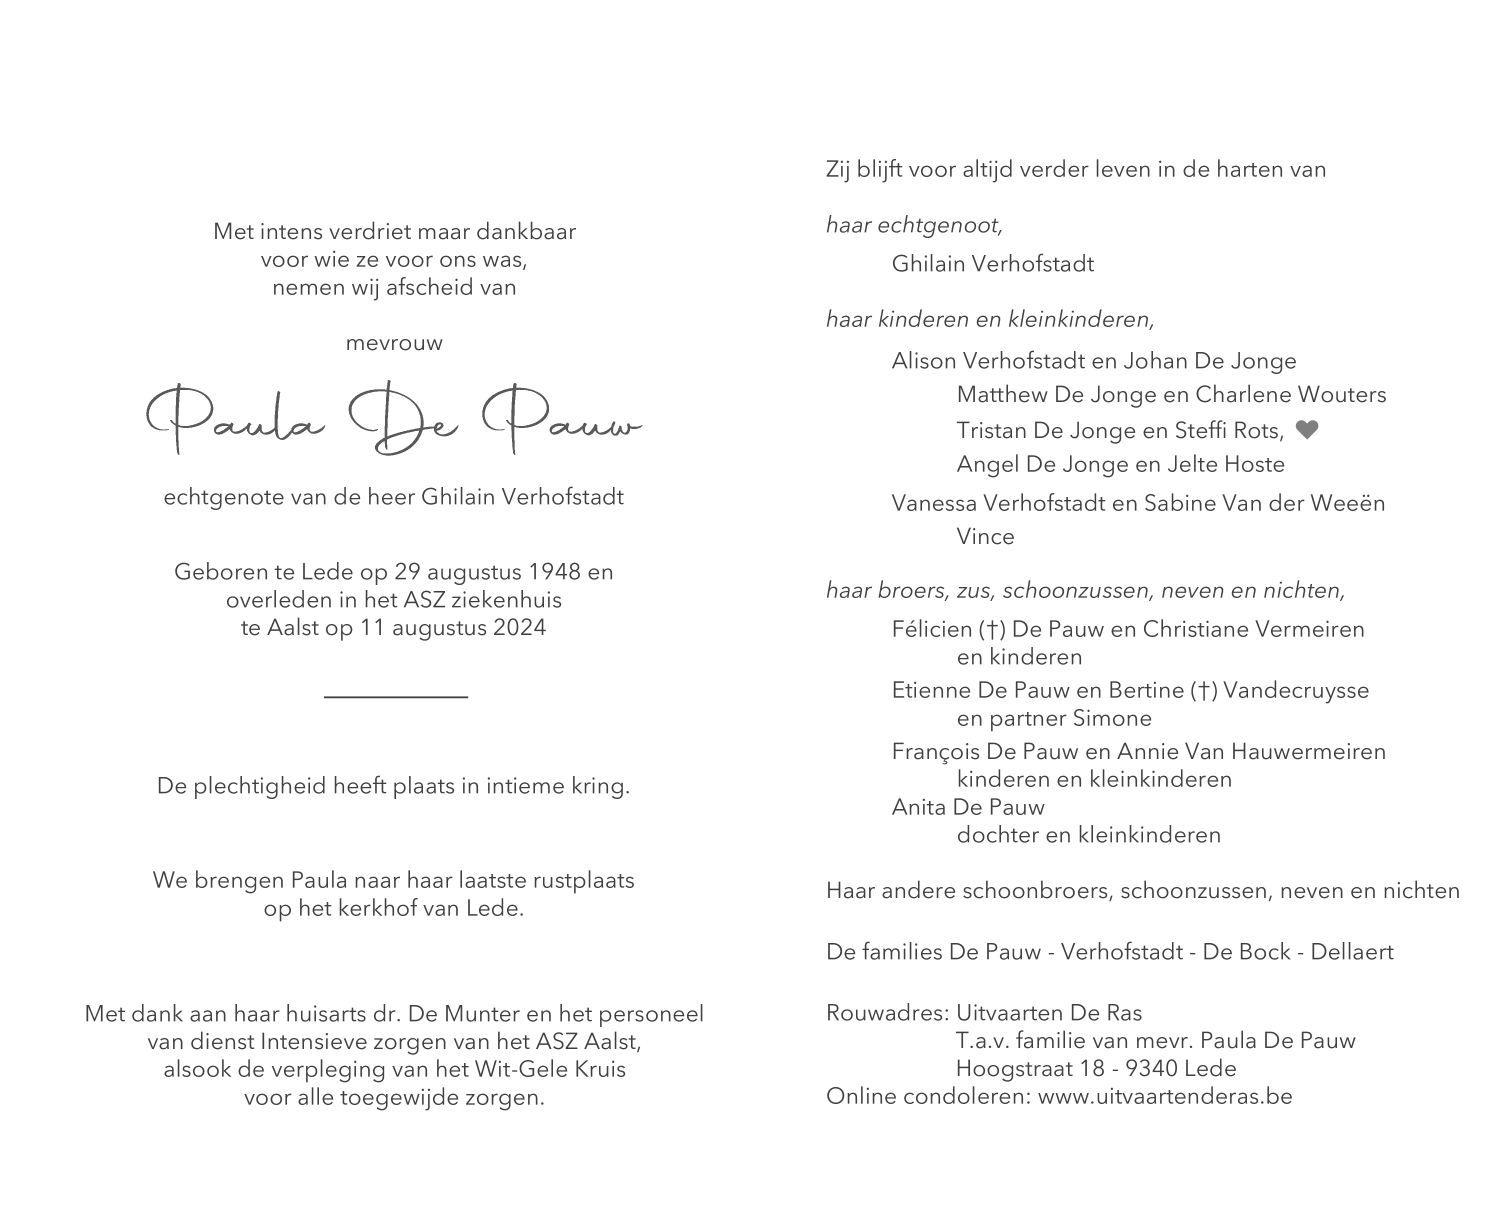 Met intens verdriet maar dankbaar
voor wie ze voor ons was,
nemen wij afscheid van
mevrouw
Paula De Pauw
echtgenote van de heer Ghilain Verhofstadt
Geboren te Lede op 29 augustus 1948 en
overleden in het ASZ ziekenhuis
te Aalst op 11 augustus 2024
De plechtigheid heeft plaats in intieme kring.
We brengen Paula naar haar laatste rustplaats
op het kerkhof van Lede.
Met dank aan haar huisarts dr. De Munter en het personeel
van dienst Intensieve zorgen van het ASZ Aalst,
alsook de verpleging van het Wit-Gele Kruis
voor alle toegewijde zorgen.
Zij blijft voor altijd verder leven in de harten van
haar echtgenoot,
Ghilain Verhofstadt
haar kinderen en kleinkinderen,
Alison Verhofstadt en Johan De Jonge
Matthew De Jonge en Charlene Wouters
Tristan De Jonge en Steffi Rots, ♥
Angel De Jonge en Jelte Hoste
Vanessa Verhofstadt en Sabine Van der Weeën
Vince
haar broers, zus, schoonzussen, neven en nichten,
Félicien (†) De Pauw en Christiane Vermeiren
en kinderen
Etienne De Pauw en Bertine (†) Vandecruysse
en partner Simone
François De Pauw en Annie Van Hauwermeiren
kinderen en kleinkinderen
Anita De Pauw
dochter en kleinkinderen
Haar andere schoonbroers, schoonzussen, neven en nichten
De families De Pauw - Verhofstadt - De Bock - Dellaert
Rouwadres: Uitvaarten De Ras
T.a.v. familie van mevr. Paula De Pauw
Hoogstraat 18 - 9340 Lede
Online condoleren: www.uitvaartenderas.be